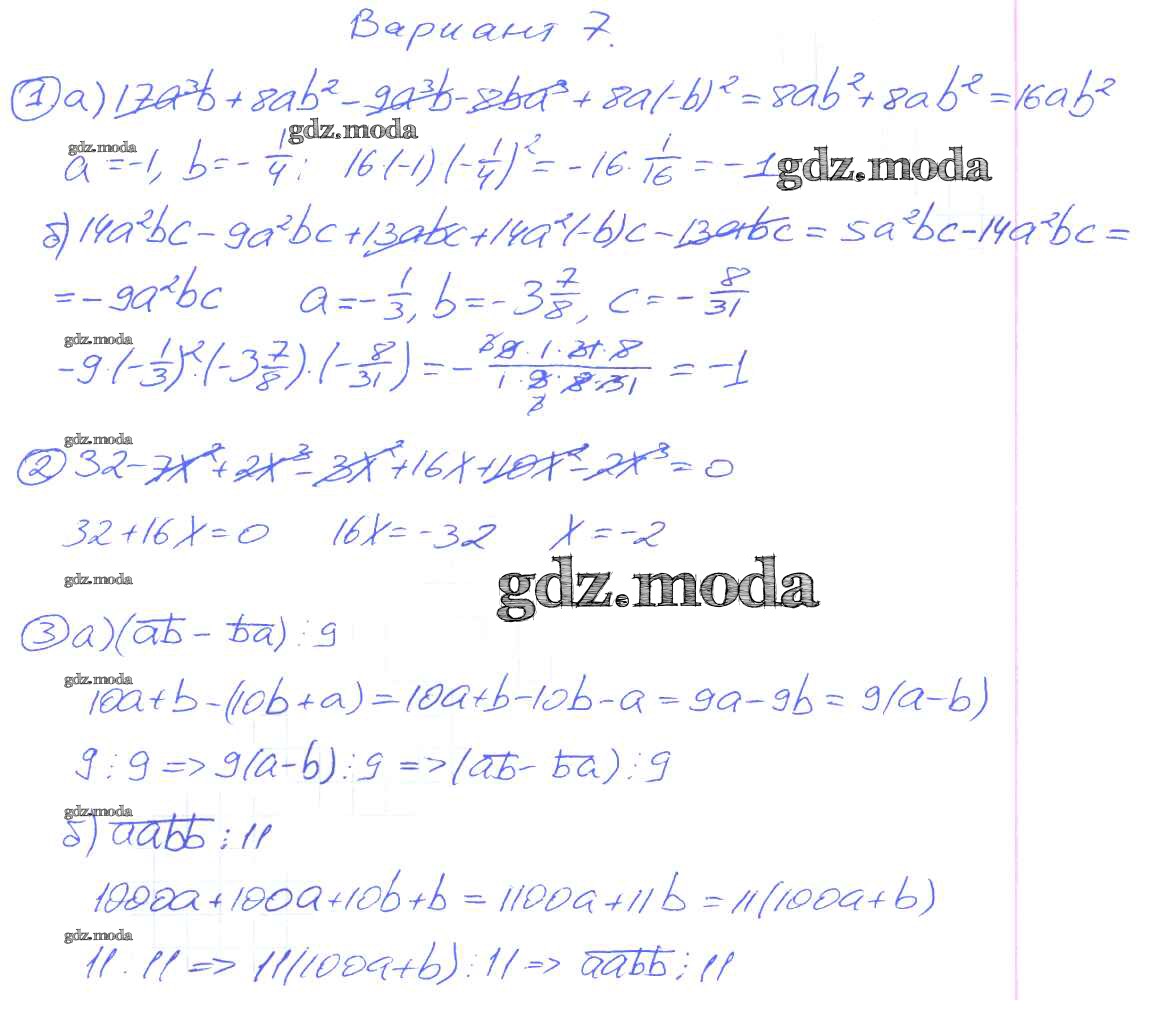 Вариант 7.
① а) 17a³b + 8ab² - 9a³b - 8ba³ + 8a(-b)² = 8ab² + 8ab² = 16ab²
gdz.moda
gdz.moda
a = -1, b = - 1/4; 16·(-1)(-1/4)² = -16· 1/16 = -1
gdz.moda
б) 14a²bc - 9a²bc + 13abc + 14a²(-b)c - 13abc = 5a²bc - 14a²bc =
= -9a²bc a = - 1/3, b = -3 7/8, c = - 8/31
gdz.moda
-9·(- 1/3)²·(-3 7/8)·(- 8/31) = - 9·1·31·8 / 1·9·8·31 = -1
gdz.moda
② 32 - 7x² + 2x³ - 3x² + 16x + 10x² - 2x³ = 0
32 + 16x = 0 16x = -32 x = -2
gdz.moda
gdz.moda
③ а) (ab - ba) ⋮ 9
gdz.moda
10a + b - (10b + a) = 10a + b - 10b - a = 9a - 9b = 9(a - b)
9 ⋮ 9 => 9(a - b) ⋮ 9 => (ab - ba) ⋮ 9
gdz.moda
б) aabb ⋮ 11
1000a + 100a + 10b + b = 1100a + 11b = 11(100a + b)
gdz.moda
11 ⋮ 11 => 11(100a + b) ⋮ 11 => aabb ⋮ 11